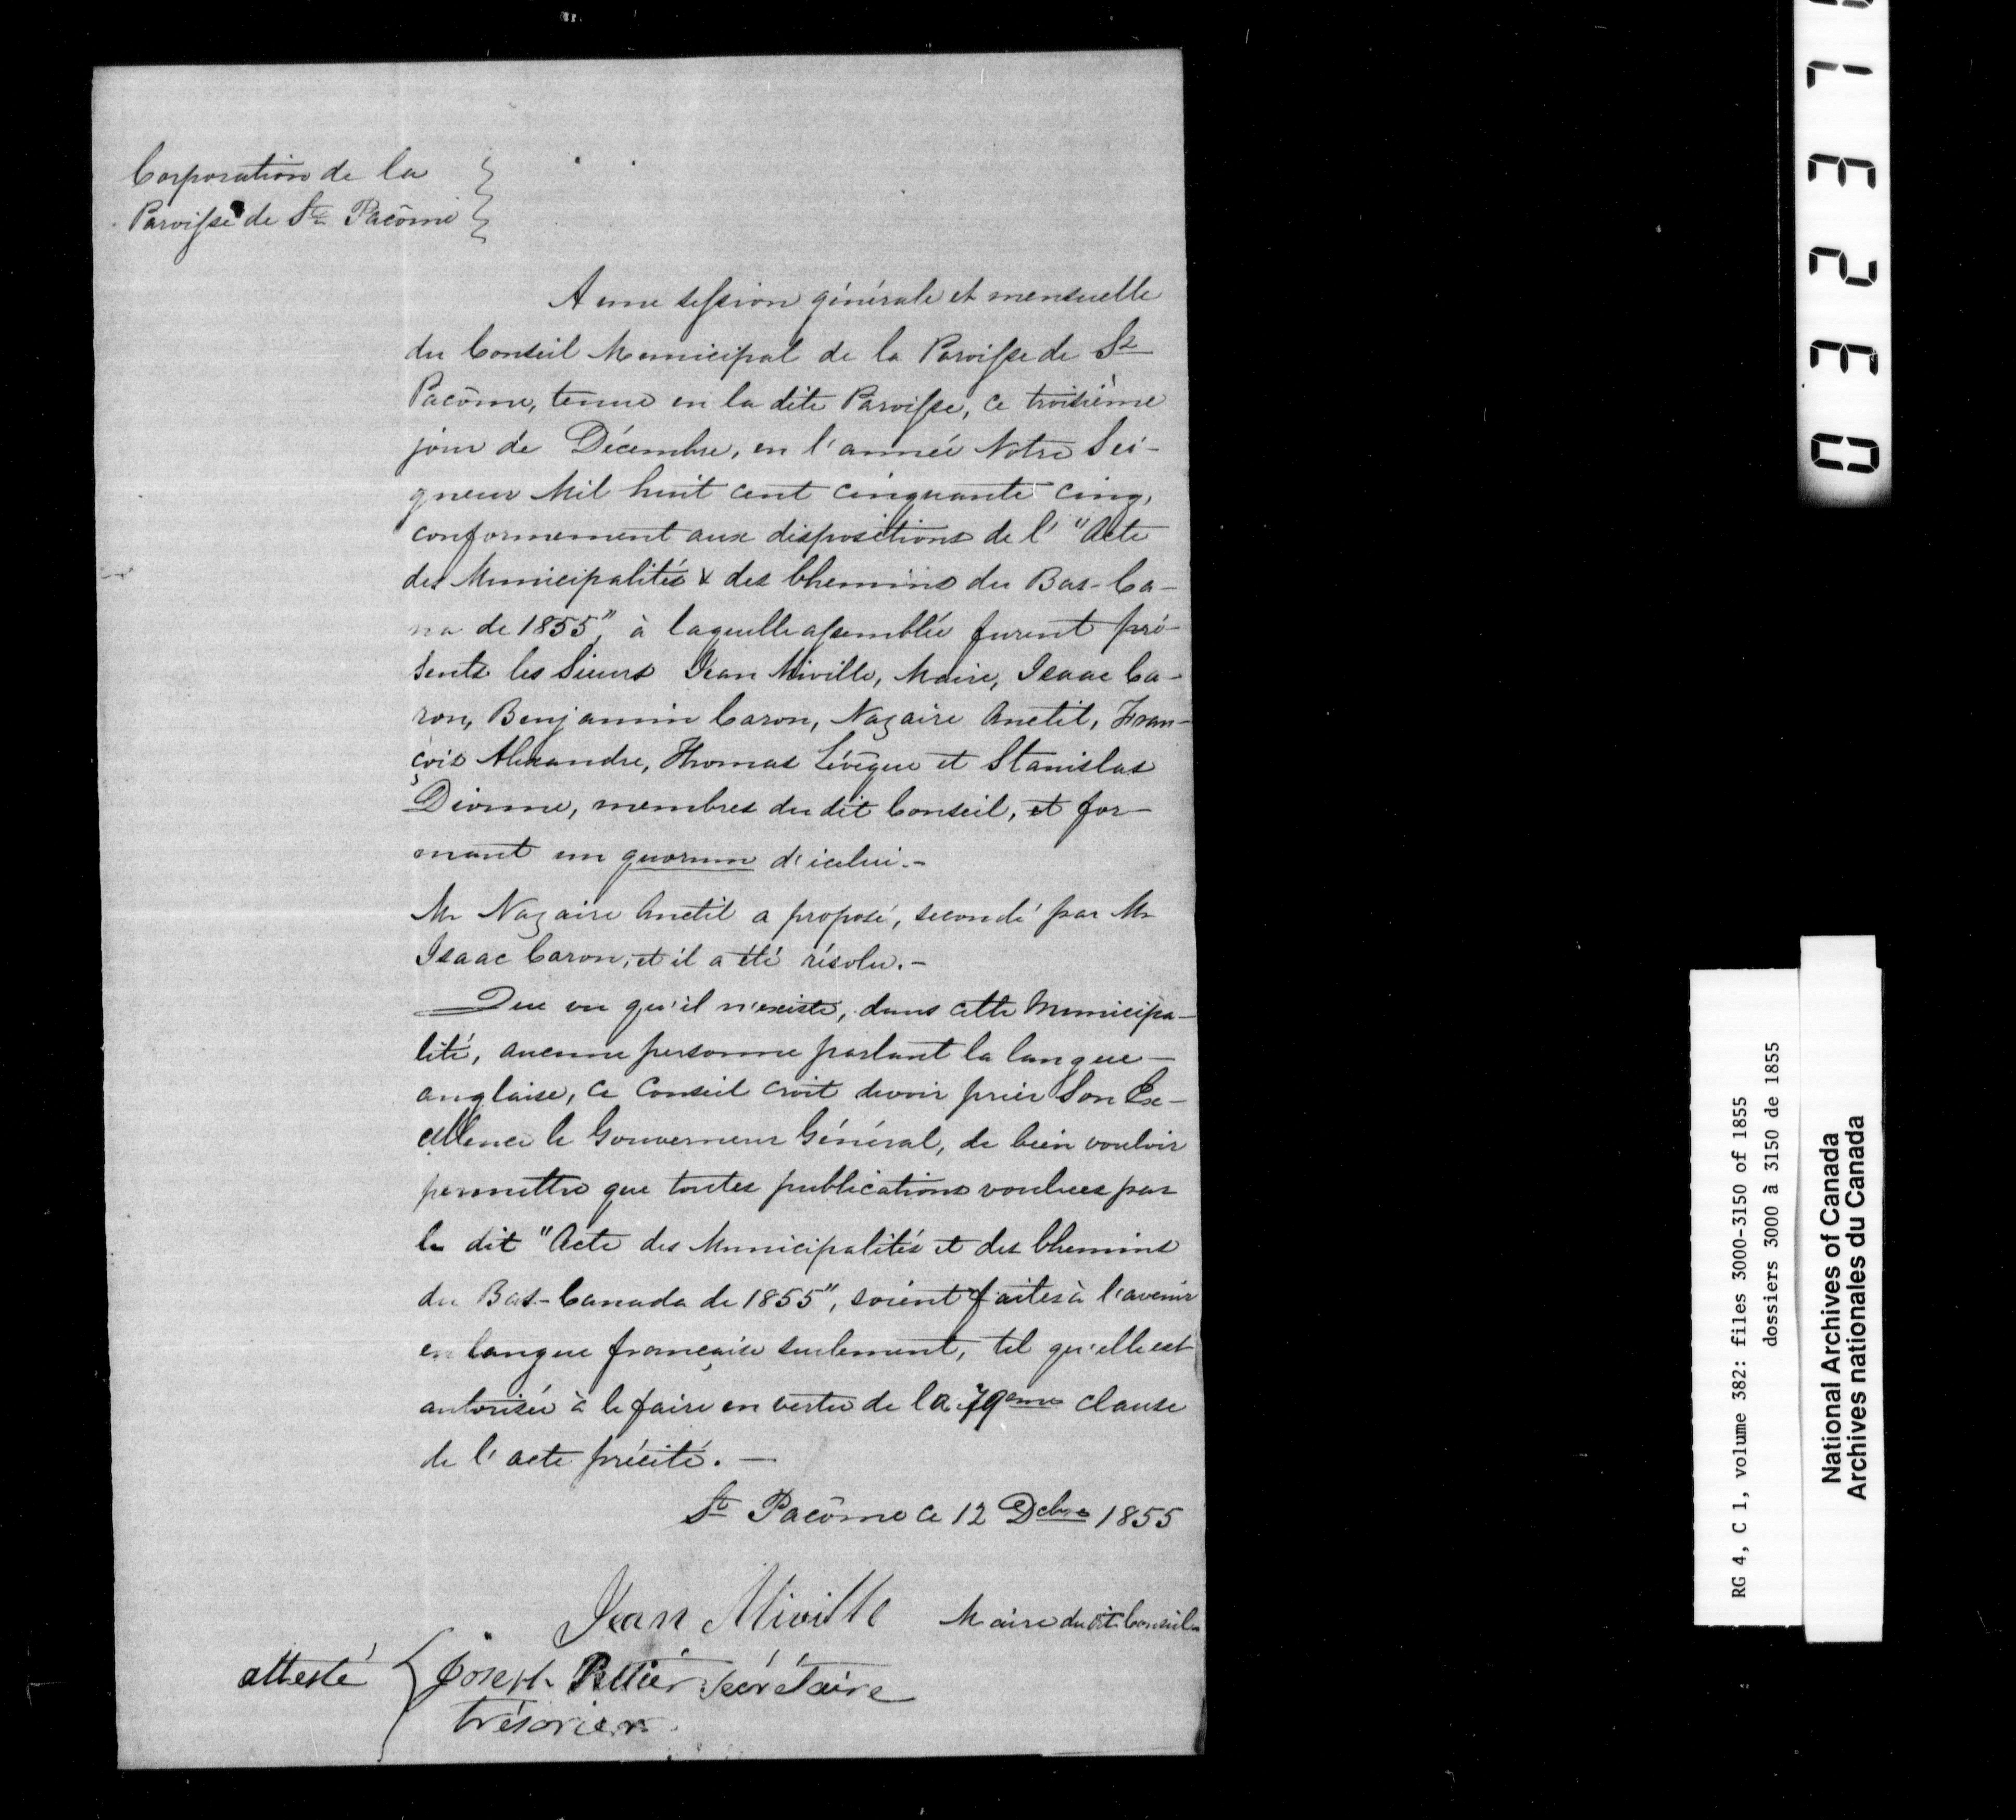 Corporation de la
Paroisse de St Pacôme
A une session générale et mensuelle
du Conseil Municipal de la Paroisse de St
Pacôme, tenue en la dite Paroisse, ce troisième
jour de Décembre, en l'année Notre Sei-
gneur Mil huit cent cinquante cinq,
conformement aux dispositions de l' "Acte
des Municipalités & des Chemins du Bas-Ca-
na de 1855", à laquelle assemblée furent pré-
sents les Sieurs Jean Miville, Maire, Isaac Ca-
ron, Benjamin Caron, Nazaire Anctil, Fran-
çois Alexandre, Thomas Lévêque et Stanislas
Dionne, membres du dit Conseil, et for-
mant un quorum d'icelui.-
Mr Nazaire Anctil a proposé, secondé par Mr
Isaac Caron, et il a été résolu.-
Que vu qu'il n'existe, dans cette Municipa-
lité, aucune personne parlant la langue
anglaise, ce Conseil croit devoir prier Son Ex-
cellence le Gouverneur Général, de bien vouloir
permettre que toutes publications voulues par
le dit "Acte des Municipalités et des Chemins
du Bas-Canada de 1855", soient faites à l'avenir
en langue française seulement, tel qu'elle est
autorisée à le faire en vertu de la 79eme clause
de l'acte précité. —
St Pacôme ce 12 Dcbre 1855
Jean Miville Maire du dit Conseil
attesté Joseph Pelletier Secrétaire
trésorier
RG 4, C 1, volume 382: files 3000-3150 of 1855
dossiers 3000 à 3150 de 1855
National Archives of Canada
Archives nationales du Canada